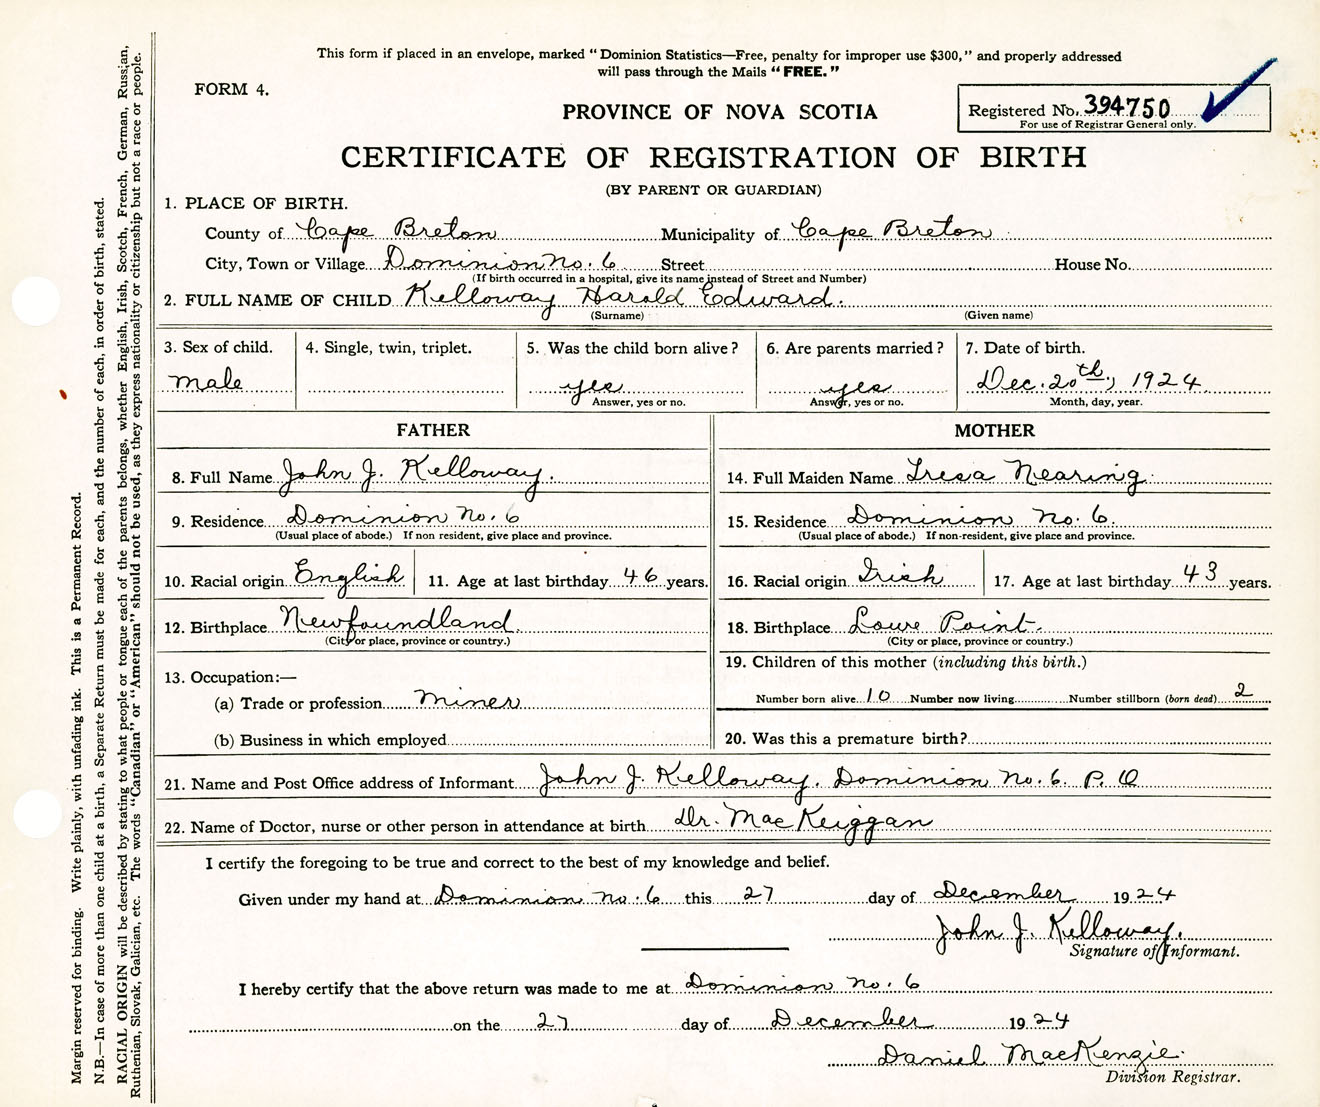 This form if placed in an envelope, marked “Dominion Statistics—Free, penalty for improper use $300,” and properly addressed
will pass through the Mails “FREE.”
FORM 4.
PROVINCE OF NOVA SCOTIA
Registered No. 394750
For use of Registrar General only.
CERTIFICATE OF REGISTRATION OF BIRTH
(BY PARENT OR GUARDIAN)
1. PLACE OF BIRTH.
County of Cape Breton Municipality of Cape Breton
City, Town or Village Dominion No. 6 Street House No.
(If birth occurred in a hospital, give its name instead of Street and Number)
2. FULL NAME OF CHILD Kelloway Harold Edward.
(Surname) (Given name)
3. Sex of child. 4. Single, twin, triplet. 5. Was the child born alive? 6. Are parents married? 7. Date of birth.
male yes yes Dec. 20th, 1924
Answer, yes or no. Answer, yes or no. Month, day, year.
FATHER MOTHER
8. Full Name John J. Kelloway. 14. Full Maiden Name Tresa Nearing.
9. Residence Dominion No. 6 15. Residence Dominion No. 6.
(Usual place of abode.) If non resident, give place and province. (Usual place of abode.) If non-resident, give place and province.
10. Racial origin English 11. Age at last birthday 46 years. 16. Racial origin Irish 17. Age at last birthday 43 years.
12. Birthplace Newfoundland. 18. Birthplace Lowe Point.
(City or place, province or country.) (City or place, province or country.)
13. Occupation:— 19. Children of this mother (including this birth.)
(a) Trade or profession Miner Number born alive 10 Number now living Number stillborn (born dead) 2
(b) Business in which employed 20. Was this a premature birth?
21. Name and Post Office address of Informant John J. Kelloway. Dominion No. 6. P. O
22. Name of Doctor, nurse or other person in attendance at birth Dr. MacKeiggan
I certify the foregoing to be true and correct to the best of my knowledge and belief.
Given under my hand at Dominion no. 6 this 27 day of December 1924
John J. Kelloway.
Signature of Informant.
I hereby certify that the above return was made to me at Dominion No. 6
on the 27 day of December 1924
Daniel MacKenzie.
Division Registrar.
Margin reserved for binding. Write plainly, with unfading ink. This is a Permanent Record.
N.B.—In case of more than one child at a birth, a Separate Return must be made for each, and the number of each, in order of birth, stated.
RACIAL ORIGIN will be described by stating to what people or tongue each of the parents belongs, whether English, Irish, Scotch, French, German, Russian,
Ruthenian, Slovak, Galician, etc. The words “Canadian” or “American” should not be used, as they express nationality or citizenship but not a race or people.